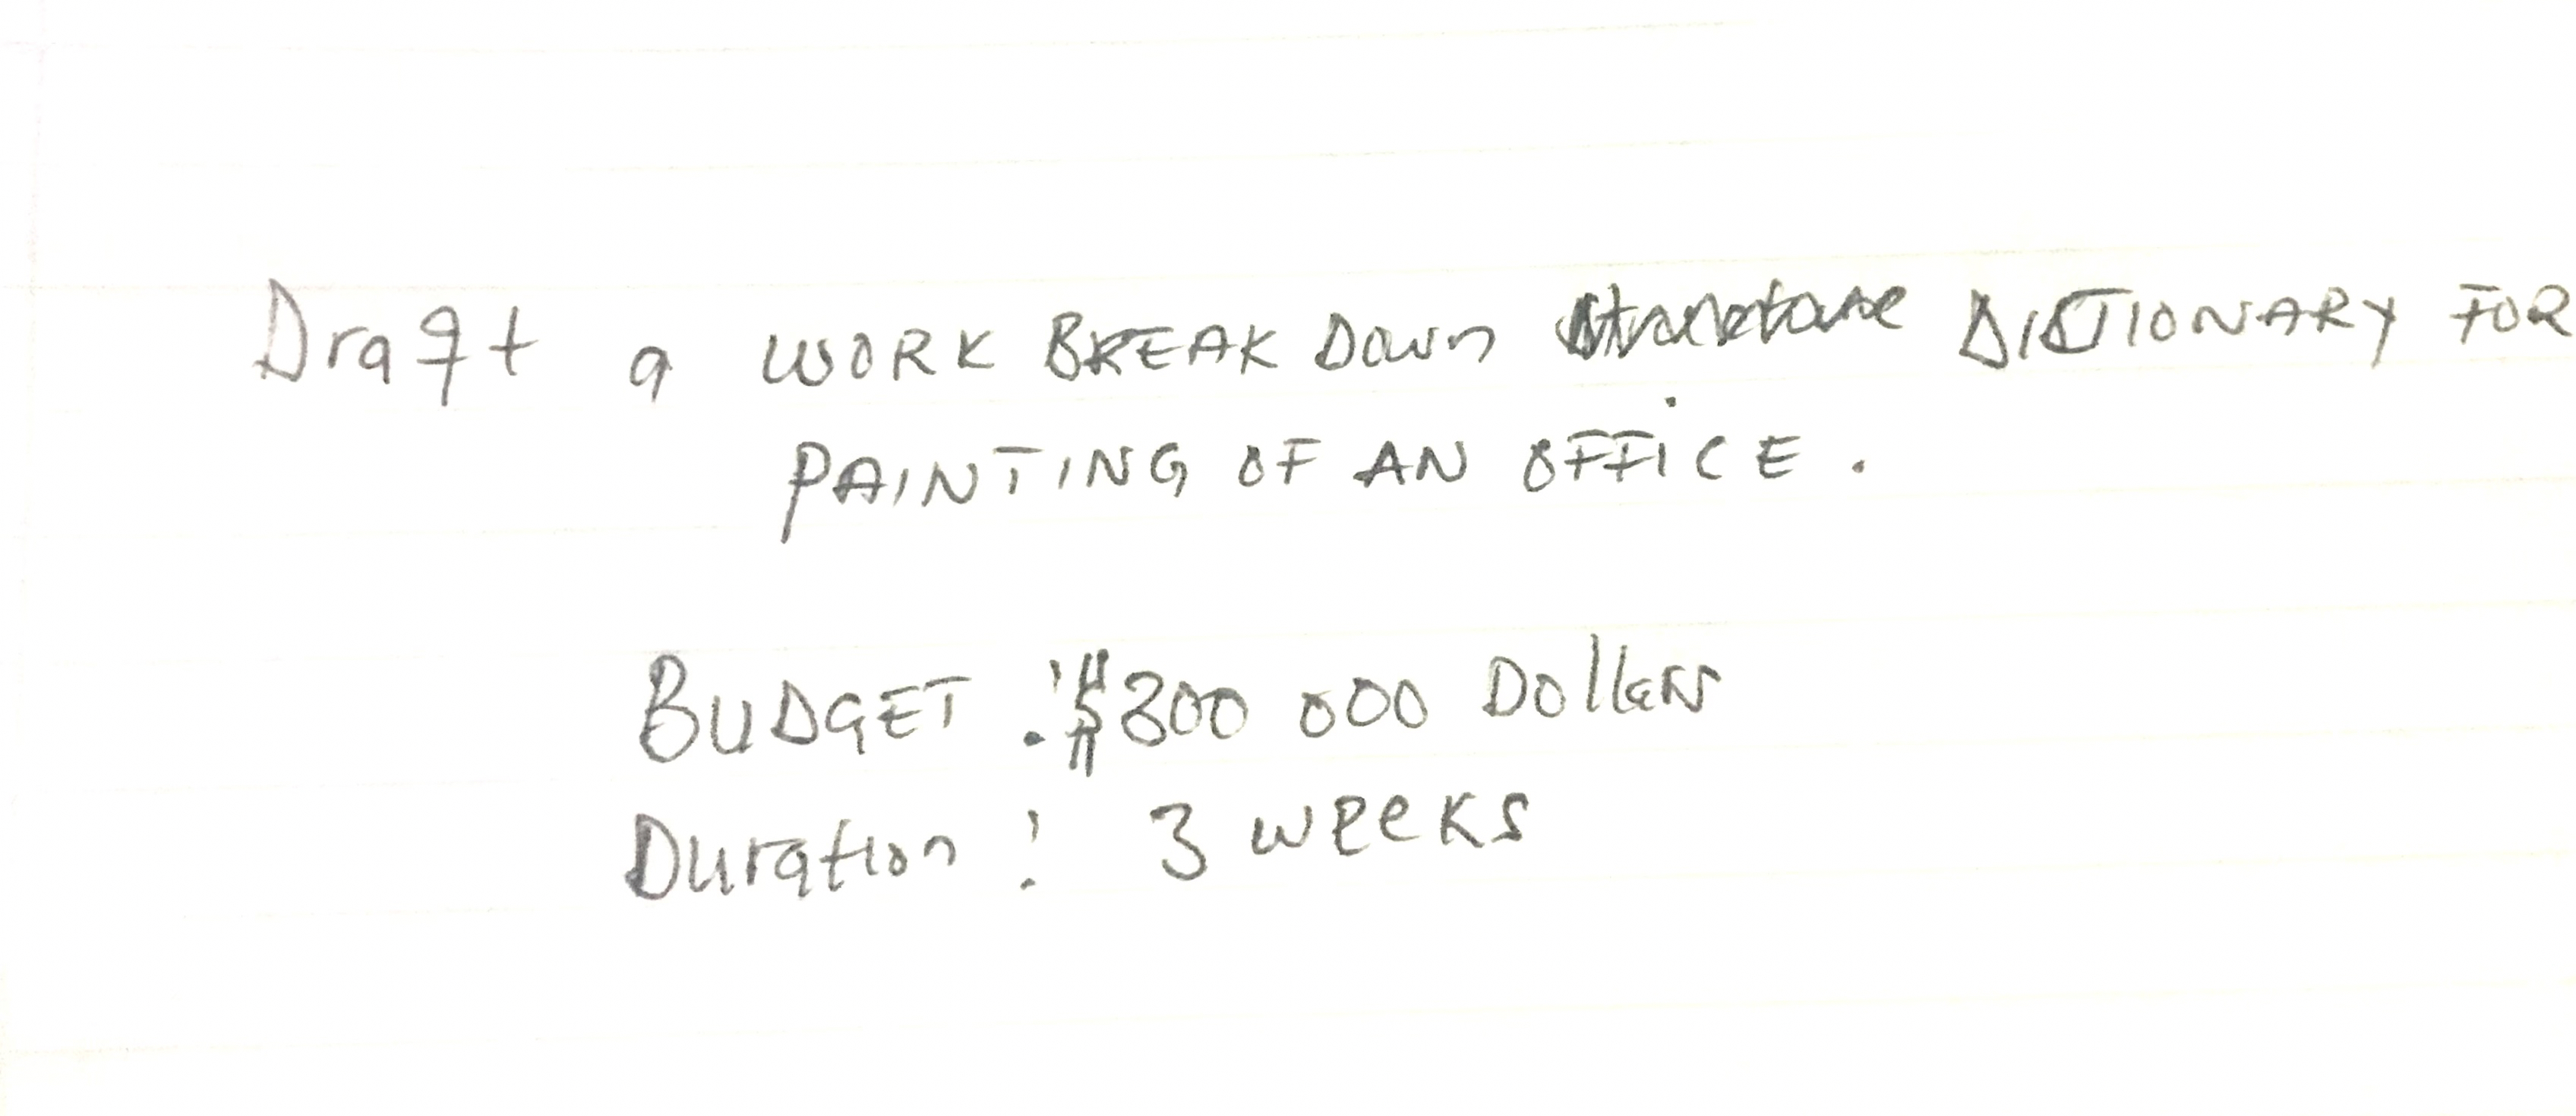 Draft a WORK BREAK Down Structure DICTIONARY FOR
PAINTING OF AN OFFICE.
BUDGET : $300 000 Dollars
Duration : 3 weeks